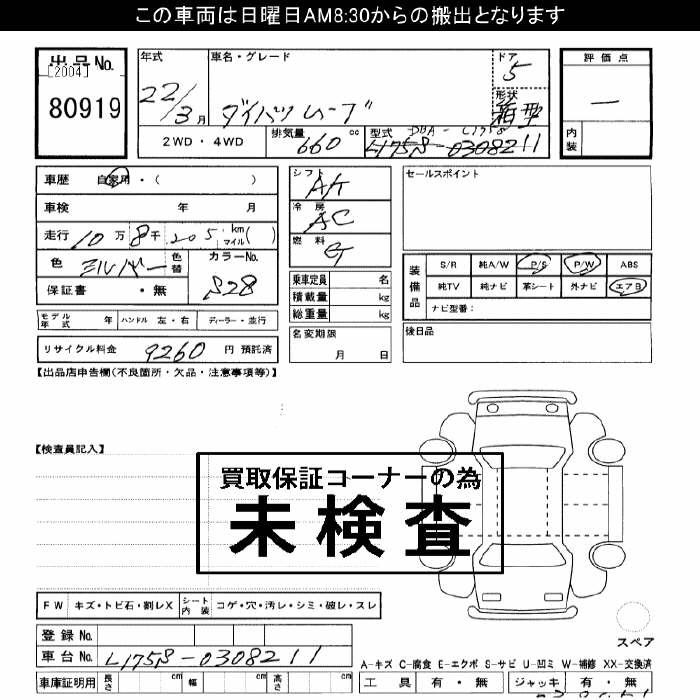 この車両は日曜日AM8:30からの搬出となります
出品No.
[2004]
80919
年式
22/3月
車名・グレード
ダイハツムーブ
ドア
5
形状
箱型
評価点
—
内装
2WD・4WD
排気量
660 cc
型式
DBA-L175S
L175S-0308211
車歴 自家用・( )
車検 年 月
走行 10万8千205 km マイル( )
色 シルバー 色替
カラーNo.
S28
保証書 ・無
シフト
AT
冷房
AC
燃料
G
セールスポイント
乗車定員 名
積載量 kg
総重量 kg
装備品
S/R 純A/W P/S P/W ABS
純TV 純ナビ 革シート 外ナビ エアB
ナビ型番:
モデル年式 年 ハンドル 左・右 ディーラー・並行
リサイクル料金 9260 円 預託済
名変期限
月 日
後日品
【出品店申告欄(不良箇所・欠品・注意事項等)】
【検査員記入】
買取保証コーナーの為
未検査
FW キズ・トビ石・割レX シート内装 コゲ・穴・汚レ・シミ・破レ・スレ
登録No.
車台No. L175S-0308211
スペア
A-キズ C-腐食 E-エクボ S-サビ U-凹ミ W-補修 XX-交換済
車庫証明用 長さ cm 幅 cm 高さ cm
工具 有・無 ジャッキ 有・無